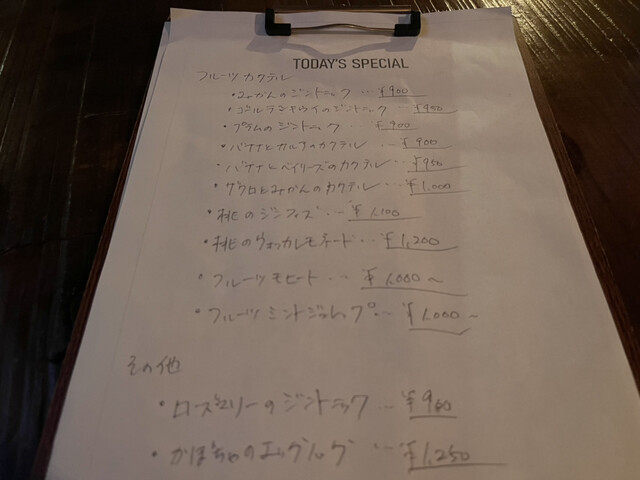 TODAY'S SPECIAL
フルーツカクテル
・みかんのジントニック … ¥900
・ゴールデンキウイのジントニック … ¥950
・プラムのジントニック … ¥900
・バナナとカルーアのカクテル … ¥900
・バナナとベイリーズのカクテル … ¥950
・ザクロとみかんのカクテル … ¥1,000
・桃のジンフィズ … ¥1,100
・桃のウォッカレモネード … ¥1,200
・フルーツモヒート … ¥1,000〜
・フルーツミントジュレップ … ¥1,000〜
その他
・ローズマリーのジントニック … ¥900
・かぼちゃのエッグノッグ … ¥1,250